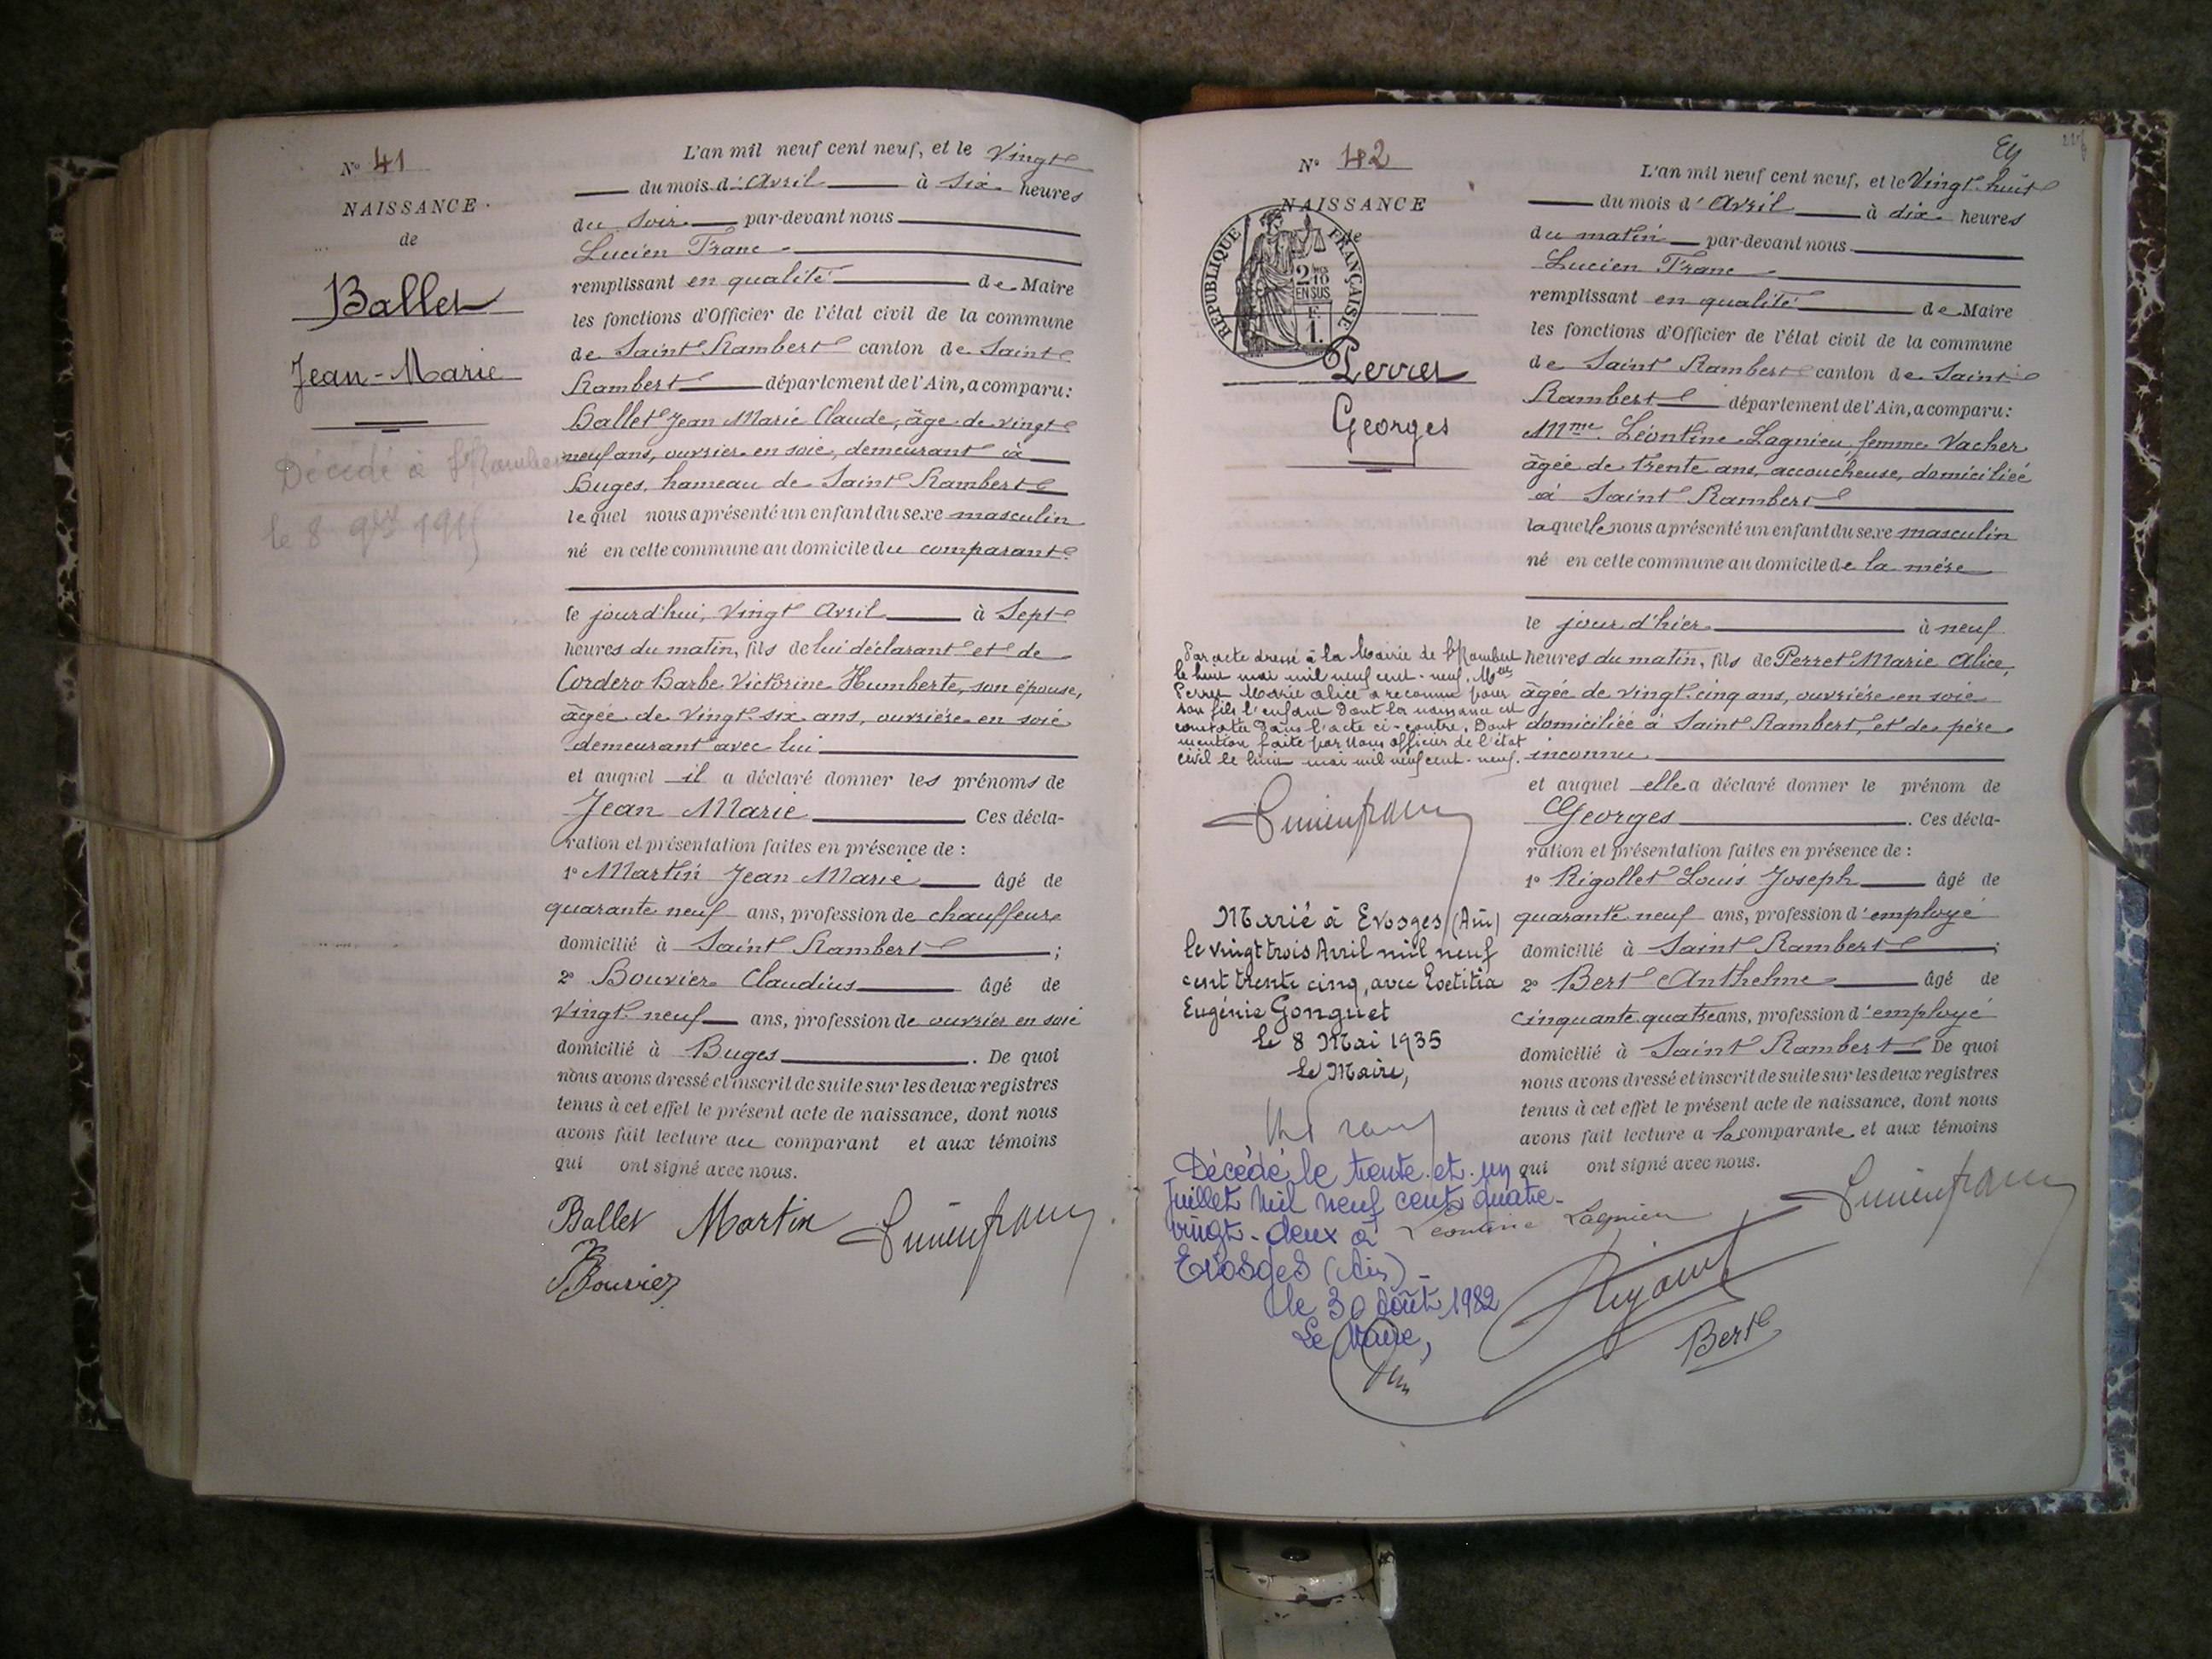 N° 41
NAISSANCE
de
Ballet
Jean-Marie
Décédé à St Rambert
le 8
L'an mil neuf cent neuf, et le Vingt
du mois d'Avril à six heures
du Soir par-devant nous
Lucien Franc
remplissant en qualité de Maire
les fonctions d'Officier de l'état civil de la commune
de Saint Rambert canton de Saint
Rambert département de l'Ain, a comparu:
Ballet Jean Marie Claude, âgé de vingt
neuf ans, ouvrier en soie, demeurant à
Buges, hameau de Saint Rambert
lequel nous a présenté un enfant du sexe masculin
né en cette commune au domicile du comparant
le jourd'hui, Vingt Avril à Sept
heures du matin, fils de lui déclarant et de
Cordero Barbe Victorine Humberte, son épouse,
âgée de Vingt-six ans, ouvrière en soie
demeurant avec lui
et auquel il a déclaré donner les prénoms de
Jean Marie Ces décla-
ration et présentation faites en présence de :
1° Martin Jean Marie âgé de
quarante neuf ans, profession de chauffeur
domicilié à Saint Rambert ;
2° Bouvier Claudius âgé de
Vingt-neuf ans, profession de ouvrier en soie
domicilié à Buges . De quoi
nous avons dressé et inscrit de suite sur les deux registres
tenus à cet effet le présent acte de naissance, dont nous
avons fait lecture au comparant et aux témoins
qui ont signé avec nous.
Ballet Martin Lucien Franc
Bouvier
N° 42
NAISSANCE
de
RÉPUBLIQUE FRANÇAISE
2/10
EN SUS
F.
1.
Perret
Georges
Par acte dressé à la Mairie de St Rambert
le huit mai mil neuf cent-neuf, Mlle
Perret Marie Alice a reconnu pour
son fils l'enfant dont la naissance est
constatée dans l'acte ci-contre. Dont
mention faite par Nous officier de l'état
civil le huit mai mil neuf cent-neuf.
Lucien Franc
Marié à Evosges (Ain)
le vingt trois Avril mil neuf
cent trente cinq, avec Loetitia
Eugénie Gonguet
le 8 Mai 1935
Le Maire,
Décédé le trente-et-un
juillet mil neuf cent quatre-
vingt-deux à
Evosges (Ain)
le 30 août 1982
Le Maire,
L'an mil neuf cent neuf, et le Vingt-huit
du mois d'Avril à dix heures
du matin par-devant nous
Lucien Franc
remplissant en qualité de Maire
les fonctions d'Officier de l'état civil de la commune
de Saint Rambert canton de Saint
Rambert département de l'Ain, a comparu:
Mme Léontine Lagnieu, femme Vacher
âgée de trente ans, accoucheuse, domiciliée
à Saint Rambert
laquelle nous a présenté un enfant du sexe masculin
né en cette commune au domicile de la mère
le jour d'hier à neuf
heures du matin, fils de Perret Marie Alice,
âgée de vingt-cinq ans, ouvrière en soie
domiciliée à Saint Rambert, et de père
inconnu
et auquel elle a déclaré donner le prénom de
Georges . Ces décla-
ration et présentation faites en présence de :
1° Rigollet Louis Joseph âgé de
quarante neuf ans, profession d'employé
domicilié à Saint Rambert ;
2° Bert Anthelme âgé de
cinquante quatre ans, profession d'employé
domicilié à Saint Rambert De quoi
nous avons dressé et inscrit de suite sur les deux registres
tenus à cet effet le présent acte de naissance, dont nous
avons fait lecture a la comparante et aux témoins
qui ont signé avec nous.
Léontine Lagnieu Lucien Franc
Bert